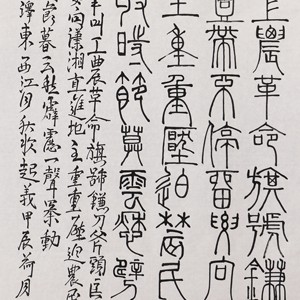 工農革命旗號鎌
壹帶不停留要向
主重重壓迫農民
收時節莫雲愁霹
軍叫工農革命旗號鎌刀斧頭匡
向瀟湘直進地主重重壓迫農民
時節暮云愁霹靂一聲暴動
澤東西江月秋收起義甲辰荷月